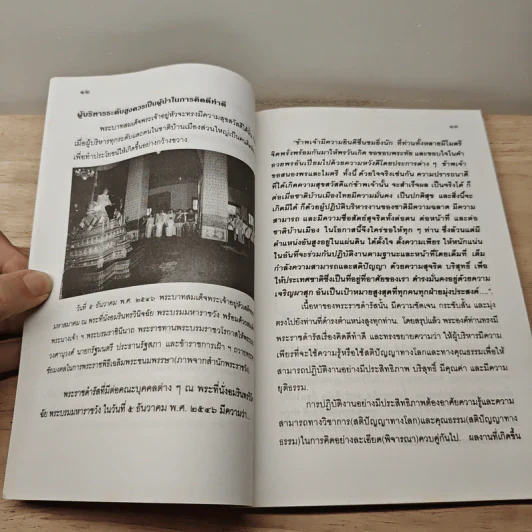 ๑๒
ผู้บริหารระดับสูงควรเป็นผู้นำในการคิดดีทำดี
พระบาทสมเด็จพระเจ้าอยู่หัวจะทรงมีความสุขสวัสดีได้
เมื่อผู้บริหารทุกระดับและคนในชาติบ้านเมืองส่วนใหญ่เป็นคนดี
เพื่อทำประโยชน์ให้เกิดขึ้นอย่างกว้างขวาง
วันที่ ๕ ธันวาคม พ.ศ. ๒๕๔๖ พระบาทสมเด็จพระเจ้าอยู่หัวเสด็จ
มหาสมาคม ณ พระที่นั่งอมรินทรวินิจฉัย พระบรมมหาราชวัง พร้อมด้วยสมเด็จ
พระนางเจ้า ฯ พระบรมราชินีนาถ พระราชทานพระบรมราชวโรกาสให้พระบรม
วงศานุวงศ์ นายกรัฐมนตรี ประธานรัฐสภา และข้าราชการเฝ้า ฯ ถวายพระพร
ชัยมงคลในการพระราชพิธีเฉลิมพระชนมพรรษา(ภาพจากสำนักพระราชวัง)
พระราชดำรัสที่มีต่อคณะบุคคลต่าง ๆ ณ พระที่นั่งอมรินทรวินิจ
ฉัย พระบรมมหาราชวัง ในวันที่ ๕ ธันวาคม พ.ศ. ๒๕๔๖ มีความว่า...
๑๓
"ข้าพเจ้ามีความยินดีชื่นชมยิ่งนัก ที่ท่านทั้งหลายมีไมตรี
จิตพรั่งพร้อมกันมาให้พรวันเกิด ขอขอบพระทัย และขอบใจในคำ
อวยพรอันเปี่ยมไปด้วยความหวังดีโดยประการต่าง ๆ ข้าพเจ้า
ขอสนองพรและไมตรี ทั้งนี้ ด้วยใจจริงเช่นกัน ความปรารถนาดี
ที่ได้เกิดความสุขสวัสดีแก่ข้าพเจ้านั้น จะสำเร็จผล เป็นจริงได้ ก็
ต่อเมื่อชาติบ้านเมืองไทยมีความมั่นคง เป็นปกติสุข และสิ่งนี้จะ
เกิดมีได้ ก็ด้วยผู้ปฏิบัติบริหารงานของชาติมีความฉลาด มีความ
สามารถ และมีความซื่อสัตย์สุจริตทั้งต่อตน ต่อหน้าที่ และต่อ
ชาติบ้านเมือง ในโอกาสนี้จึงใคร่ขอให้ทุก ๆ ท่าน ซึ่งล้วนแต่มี
ตำแหน่งอันสูงอยู่ในแผ่นดิน ได้ตั้งใจ ตั้งความเพียร ให้หนักแน่น
ในอันที่จะร่วมกันปฏิบัติงานตามฐานะและหน้าที่โดยเต็มที่ เต็ม
กำลังความสามารถและสติปัญญา ด้วยความสุจริต บริสุทธิ์ เพื่อ
ให้ประเทศชาติซึ่งเป็นที่อยู่ที่อาศัยของเรา ดำรงมั่นคงอยู่ด้วยความ
เจริญผาสุก อันเป็นเป้าหมายสูงสุดที่ทุกคนทุกฝ่ายมุ่งประสงค์...".
เนื้อหาของพระราชดำรัสนั้น มีความชัดเจน กระชับสั้น และมุ่ง
ตรงไปยังท่านที่ดำรงตำแหน่งสูงทุกท่าน. โดยสรุปแล้ว พระองค์ท่านทรงมี
พระราชดำรัสเรื่องคิดดีทำดี และทรงขยายความว่า ให้ผู้บริหารมีความ
เพียรที่จะใช้ความรู้หรือใช้สติปัญญาทางโลกและทางคุณธรรมเพื่อให้
สามารถปฏิบัติงานอย่างมีประสิทธิภาพ บริสุทธิ์ มีคุณค่า และมีความ
ยุติธรรม.
การปฏิบัติงานอย่างมีประสิทธิภาพต้องอาศัยความรู้และความ
สามารถทางวิชาการ(สติปัญญาทางโลก)และคุณธรรม(สติปัญญาทาง
ธรรม)ในการคิดอย่างละเอียด(พิจารณา)ควบคู่กันไป... ผลงานที่เกิดขึ้น